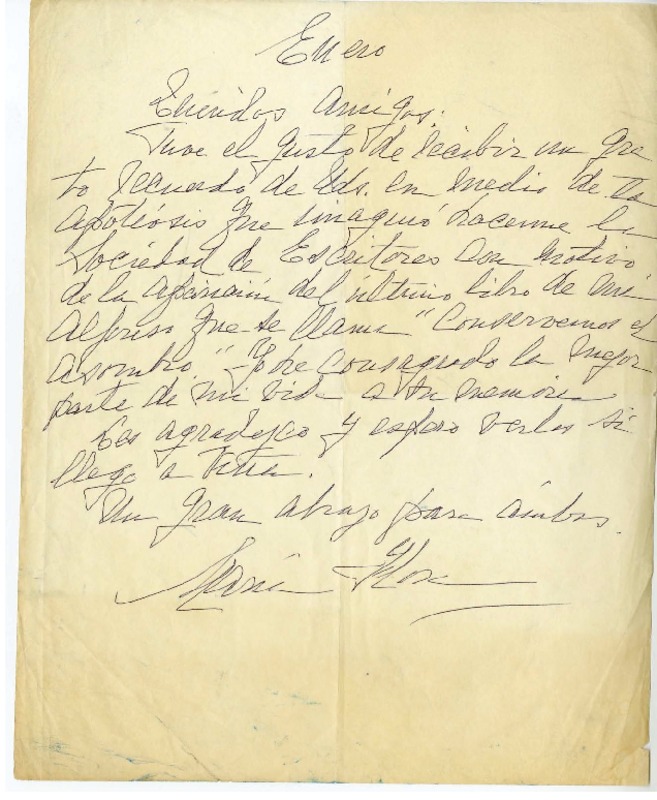 Enero
Queridos amigos:
Tuve el gusto de recibir un gra
to recuerdo de Uds. en medio de la
apoteosis que imaginó hacerme la
Sociedad de Escritores con motivo
de la aparición del último libro de mi
Alfonso que se llama "Conservemos el
asombro." Yo he consagrado la mejor
parte de mi vida a su memoria
Les agradezco y espero verlos si
llego a Viña.
Un gran abrazo para ambos.
María Flora